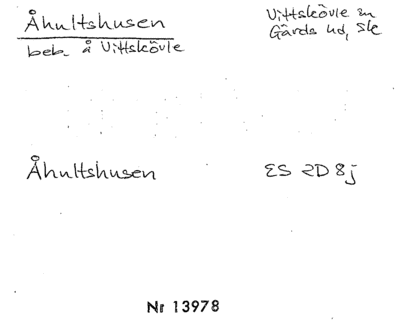 Åhultshusen
beb. å Vittskövle
Vittskövle sn
Gärds hd, Sk
Åhultshusen
ES 2D 8j
Nr 13978